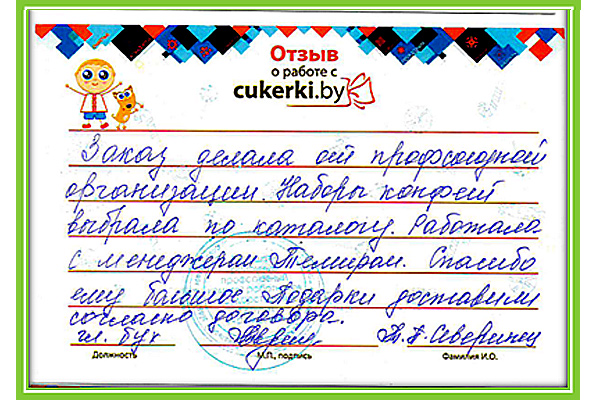 Отзыв
о работе с
cukerki.by
Заказ делала от профсоюзной
организации. Наборы конфет
выбрала по каталогу. Работала
с менеджерам Тимуром. Спасибо
ему большое. Подарки доставили
согласно договора.
гл. бух
Должность
М.П., подпись
Фамилия И.О.